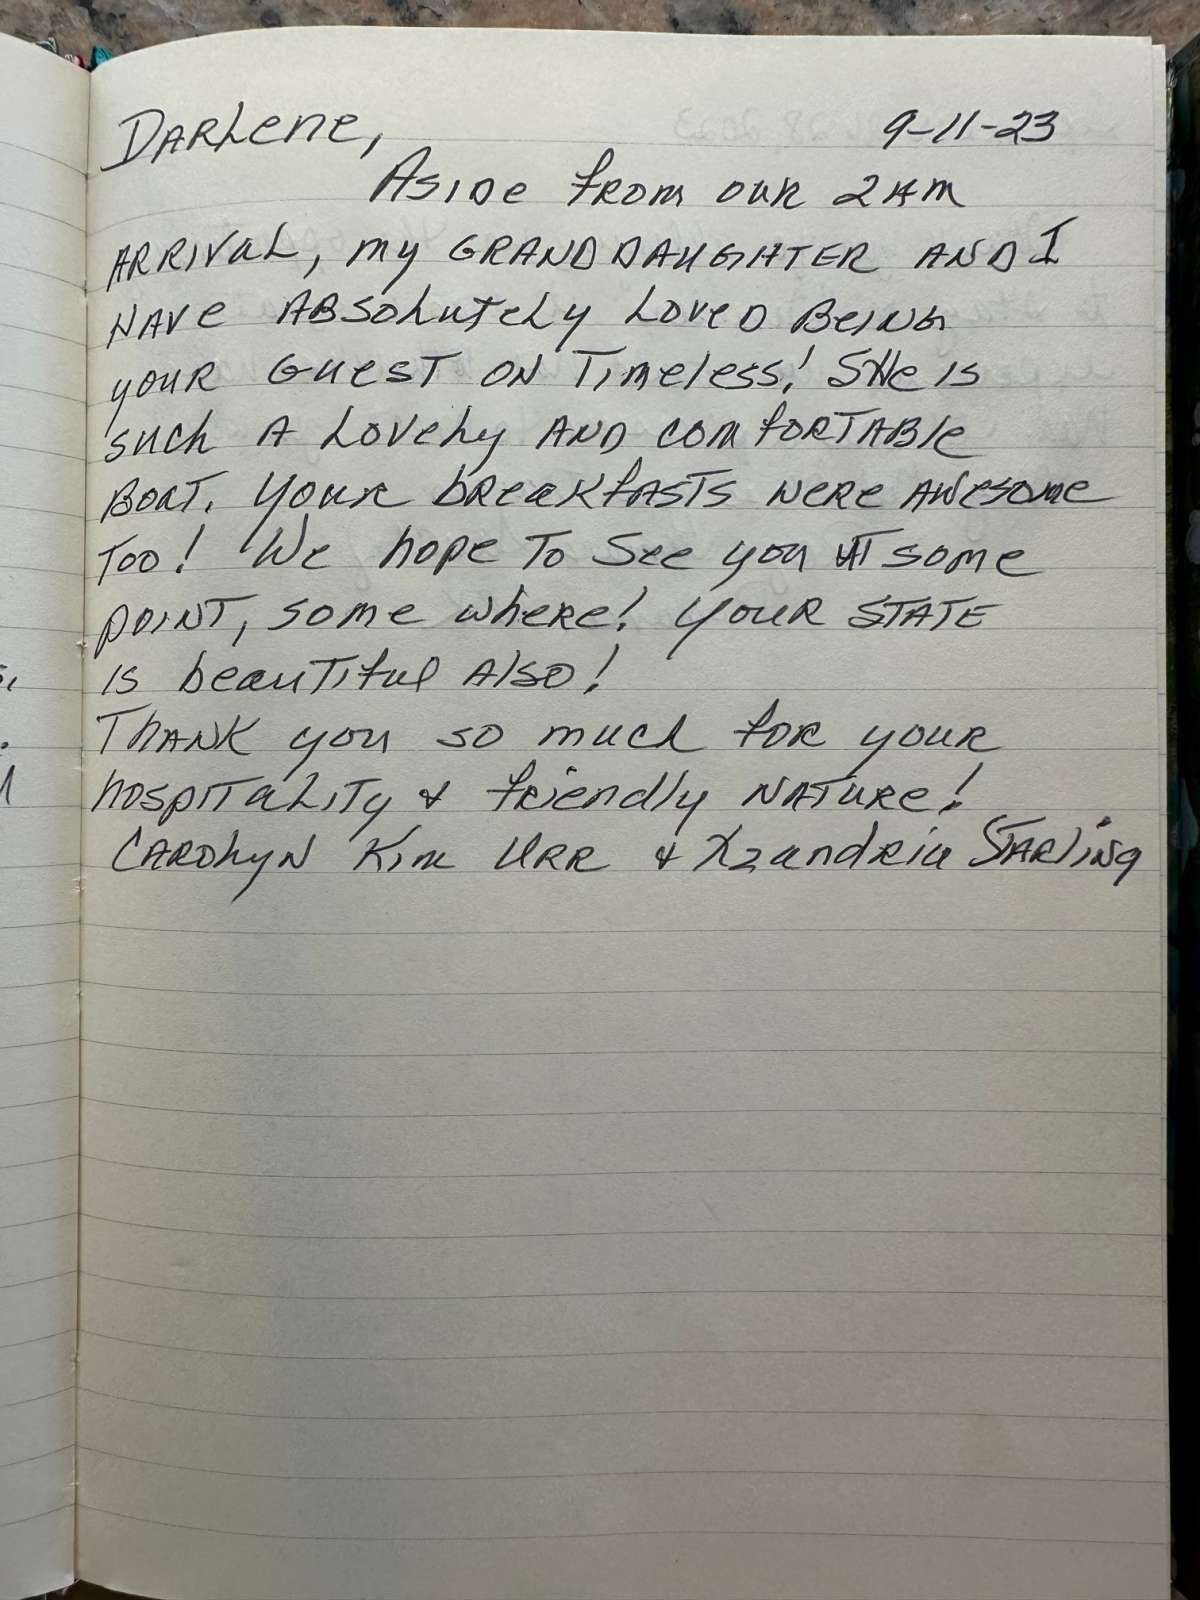 Darlene, 9-11-23
Aside from our 2AM
arrival, my granddaughter and I
have absolutely loved being
your guest on Timeless! She is
such a lovely and comfortable
boat. Your breakfasts were awesome
too! We hope to see you at some
point, some where! Your state
is beautiful also!
Thank you so much for your
hospitality & friendly nature!
Carolyn Kim Urr & Xzandria Starling